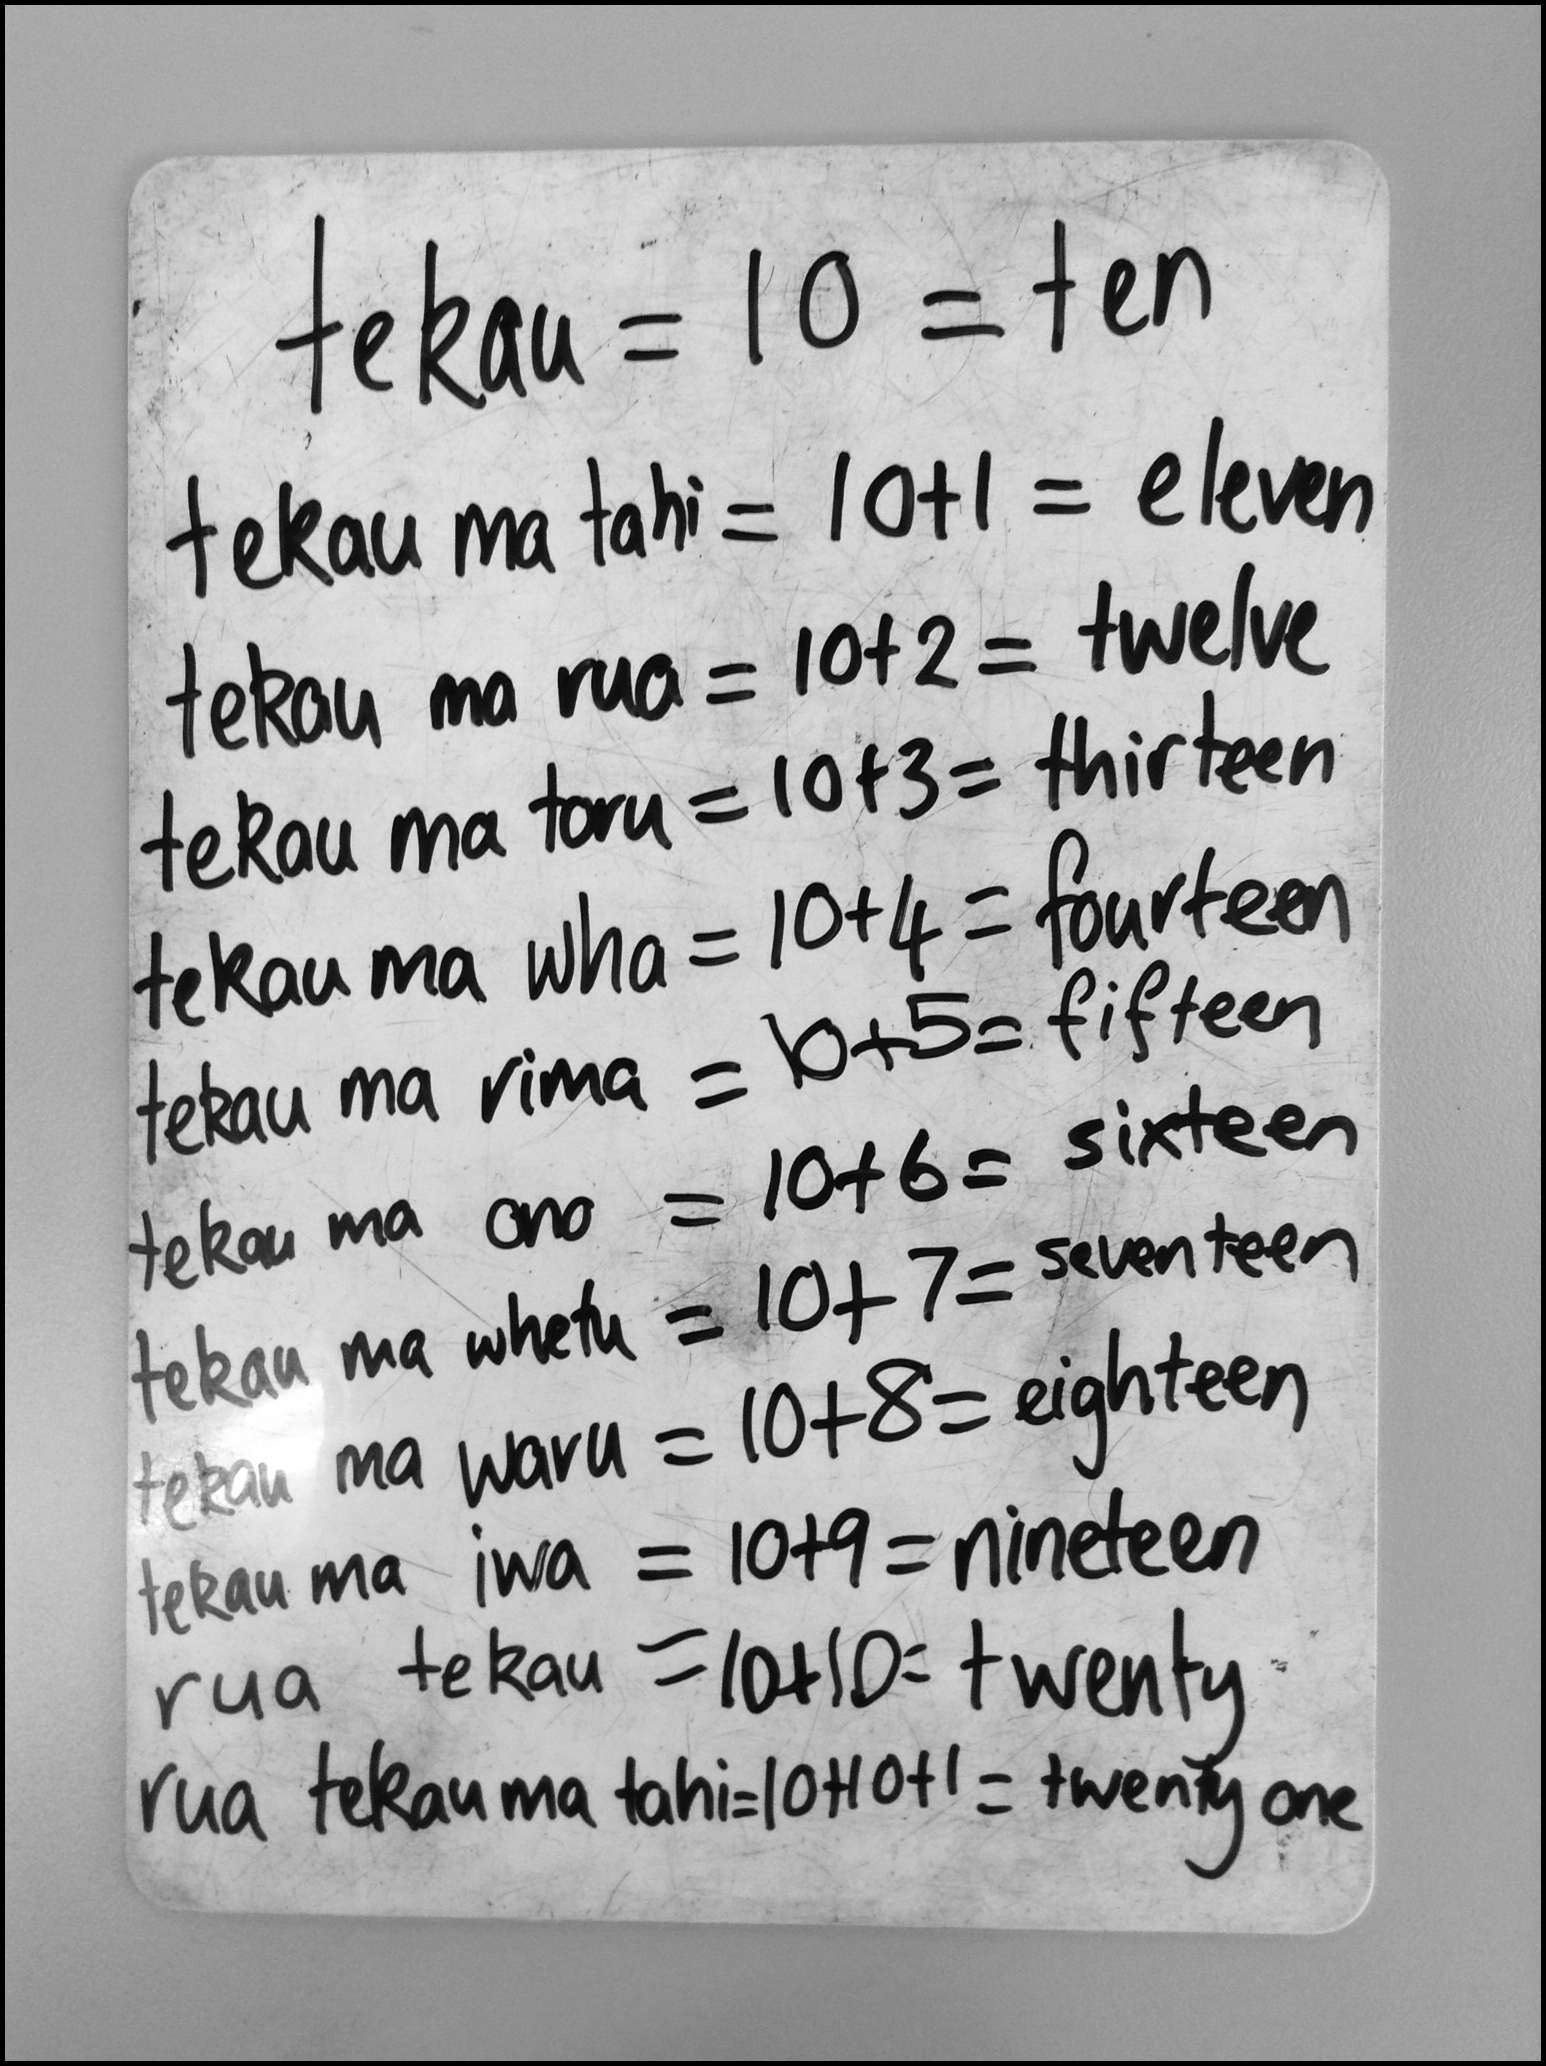 tekau = 10 = ten
tekau ma tahi = 10+1 = eleven
tekau ma rua = 10+2 = twelve
tekau ma toru = 10+3 = thirteen
tekau ma wha = 10+4 = fourteen
tekau ma rima = 10+5= fifteen
tekau ma ono = 10+6= sixteen
tekau ma whetu = 10+7= seventeen
tekau ma waru = 10+8= eighteen
tekau ma iwa = 10+9 = nineteen
rua tekau = 10+10= twenty
rua tekau ma tahi=10+10+1= twenty one